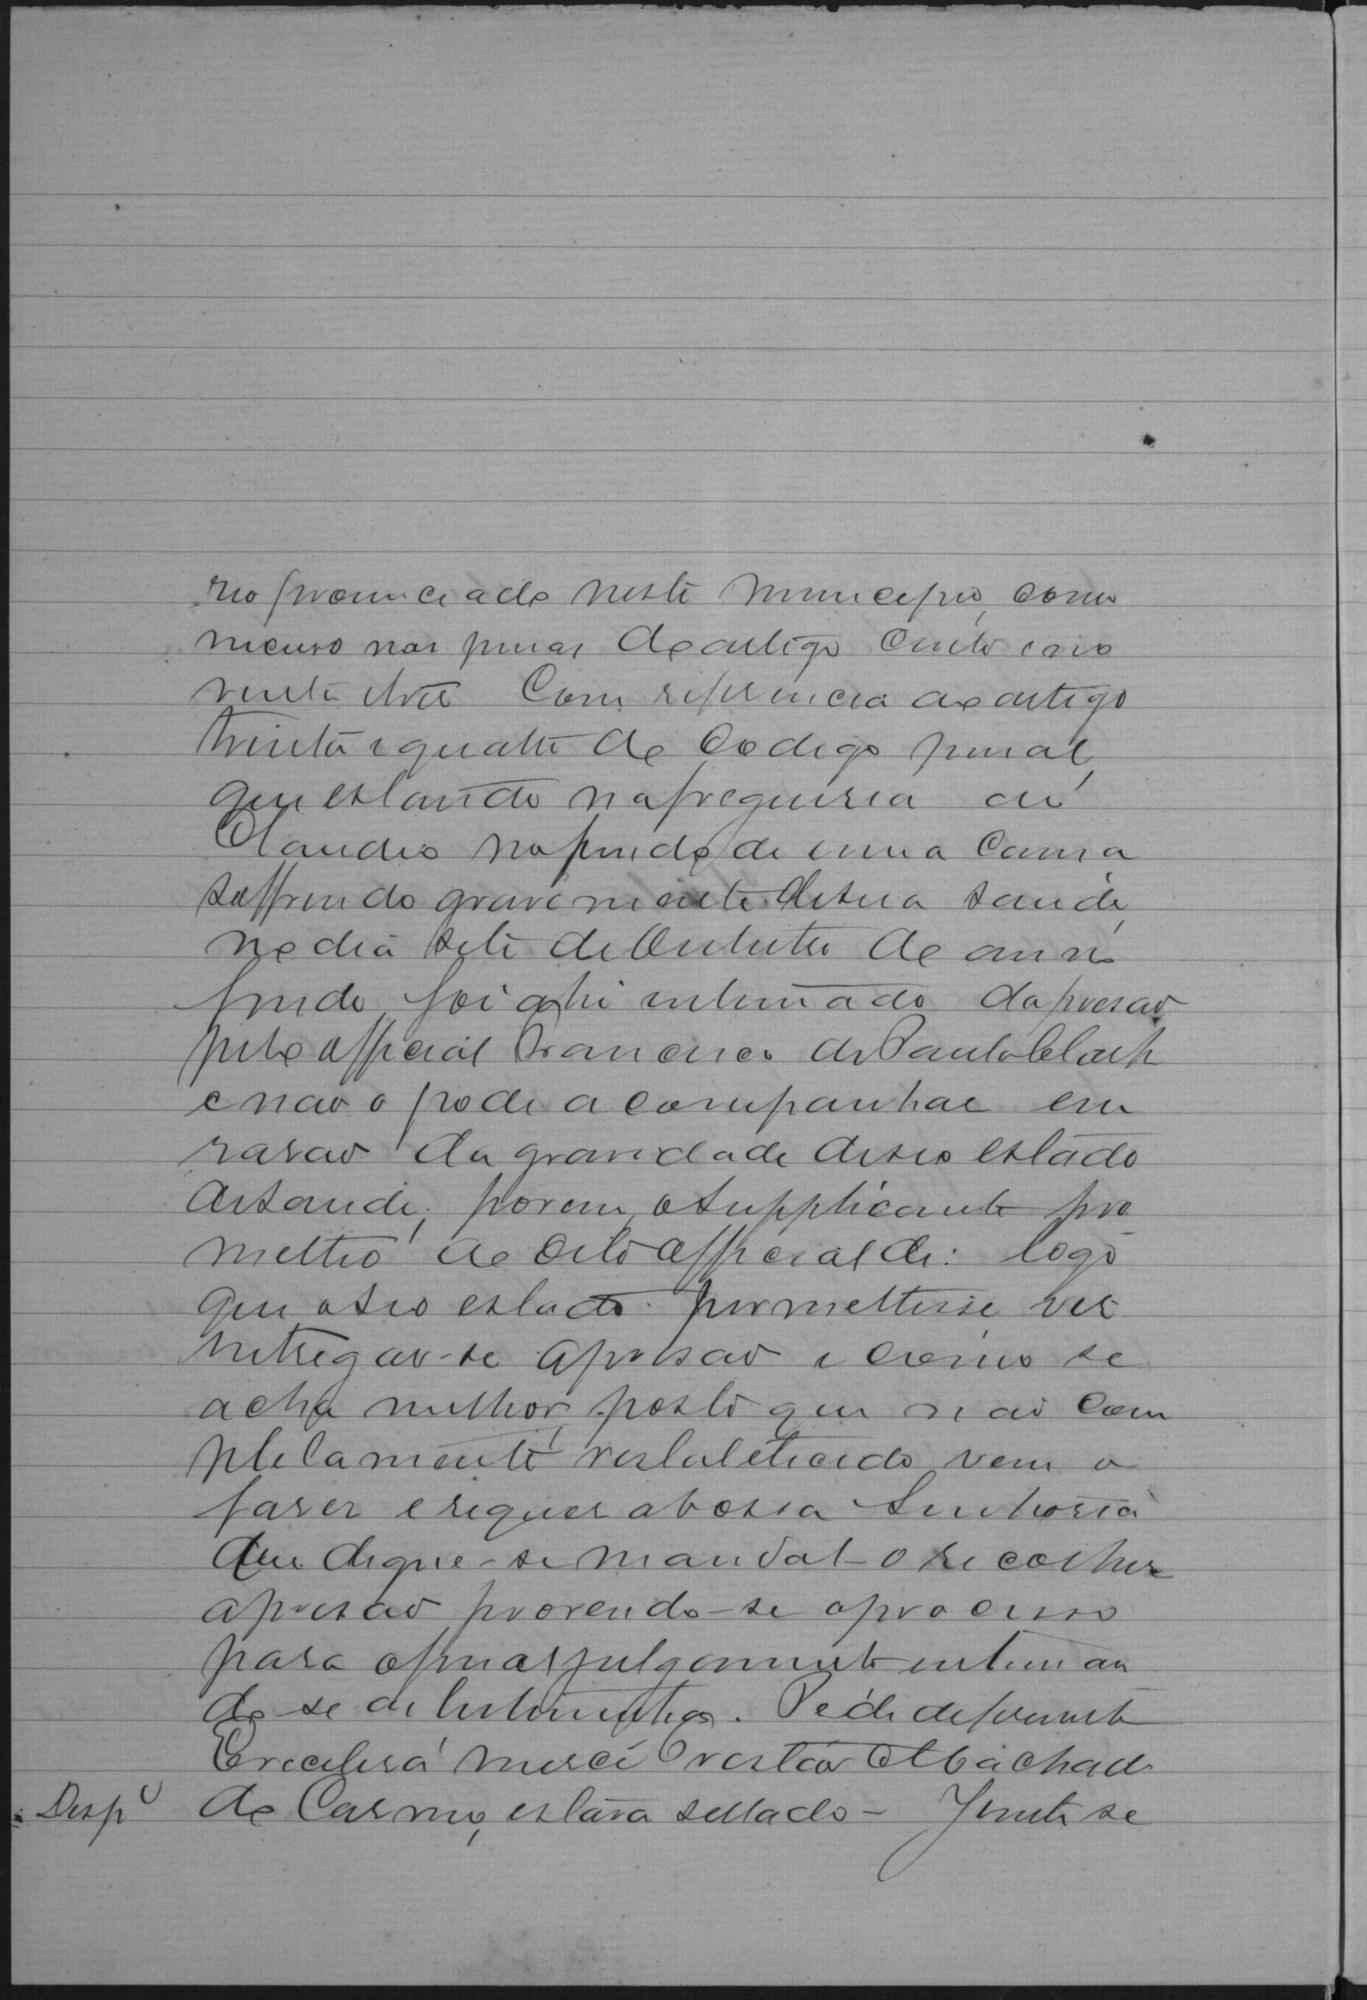 reo pronunciado neste municipio, como
incurso nas penas do artigo cento e no
venta e tres Com referencia ao artigo
trinta e quatro do Codigo penal,
que estando na freguesia do
Claudio no fundo de uma cama
soffrendo gravemente de sua saude,
no dia sete de Outubro do anno
findo, foi ahi intimado da prisaõ
pelo official Francisco de Paula
e naõ o pode acompanhar em
rasaõ da gravidade de seo estado
de saude; porem, o supplicante pro
metteo ao dito official de: logo
que o seo estado permettisse vir
entregar-se a prisaõ e como se
acha melhor, posto que naõ com
pletamente restabelecido, vem o
faser e requer a Vossa Senhoria
que digne-se mandal-o recolher
a prisaõ provendo-se o processo
para o julgamento intiman
do se as testimunhas. Pede deferimento
E recebera mercê Machado
do Carmo, estava sellado – Junte se
Desp^o